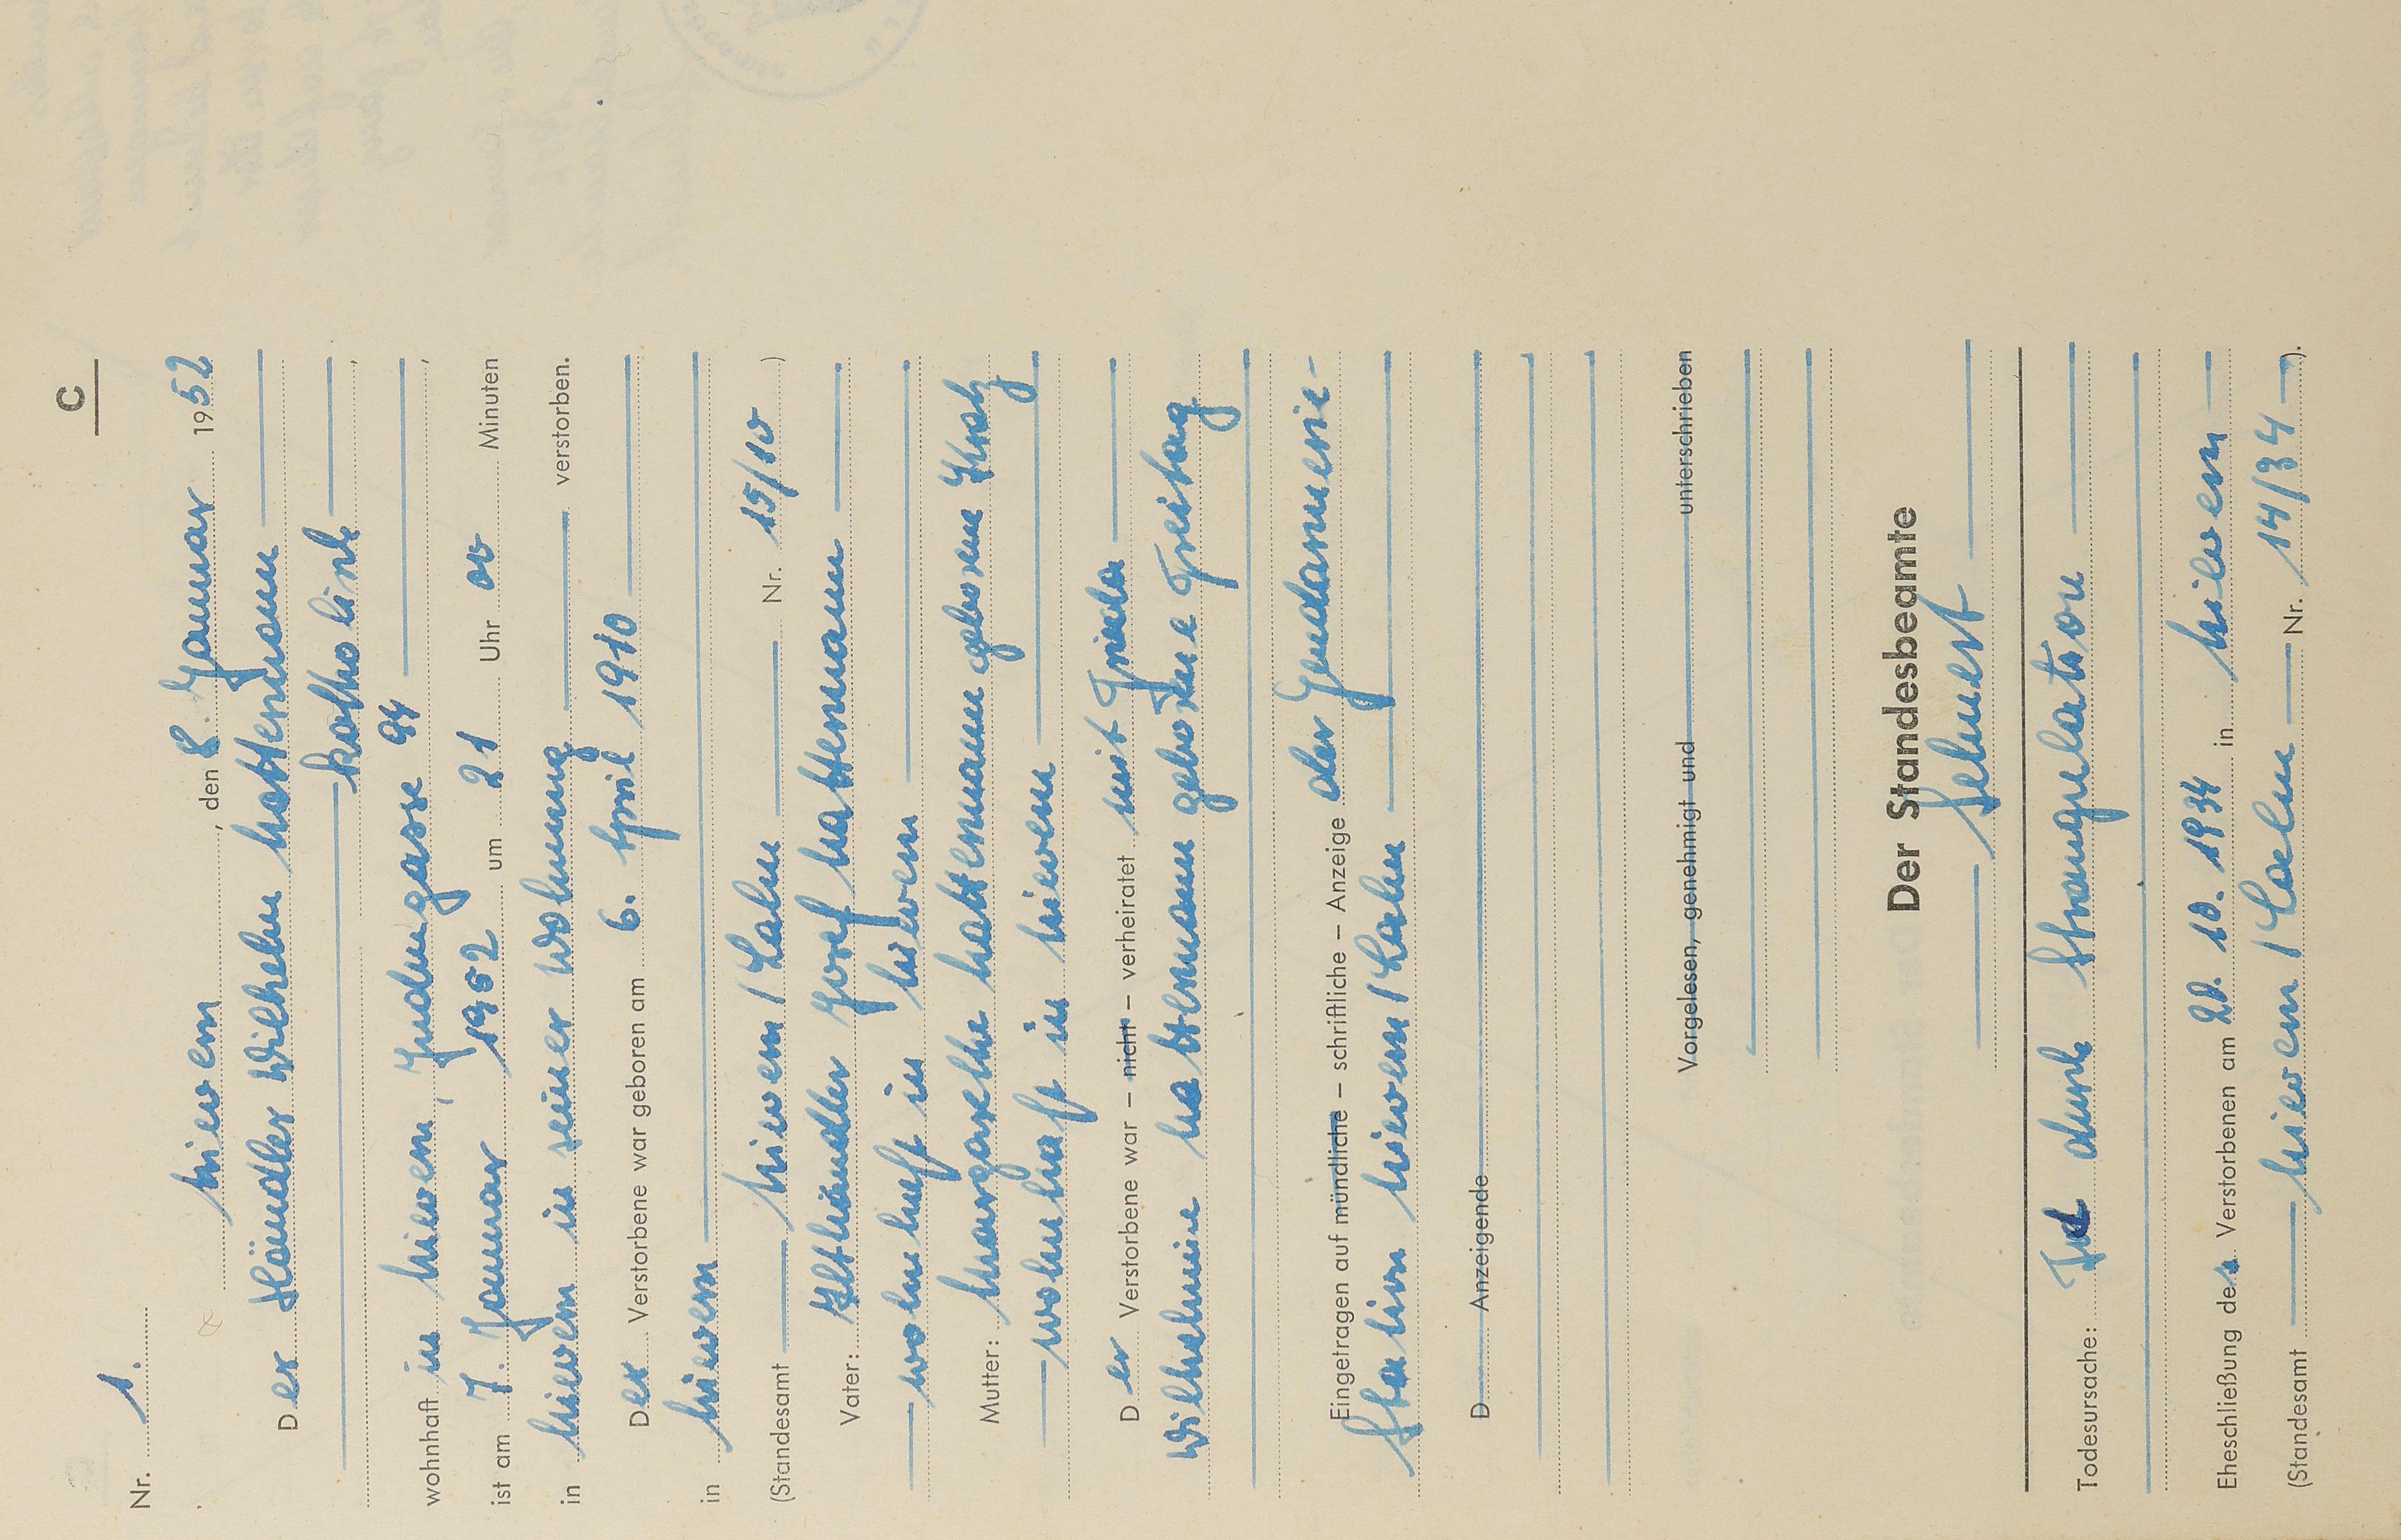 C
Nr. 1.
Nievern, den 8. Januar 1952
Der Händler Wilhelm Nattermann
katholisch
wohnhaft in Nievern, Judengasse 94
ist am 7. Januar 1952 um 21 Uhr 00 Minuten
in Nievern in seiner Wohnung verstorben.
Der Verstorbene war geboren am 6. April 1910
in Nievern
(Standesamt Nievern / Lahn Nr. 15/10)
Vater: Althändler Josef Nattermann
wohnhaft in Nievern
Mutter: Margarethe Nattermann geborene
wohnhaft in Nievern
Der Verstorbene war – nicht – verheiratet mit Frieda
Wilhelmine Nattermann geborene Freitag
Eingetragen auf mündliche – schriftliche – Anzeige der Gendarmerie-
Station Nievern / Lahn
D Anzeigende
Vorgelesen, genehmigt und unterschrieben
Der Standesbeamte
Todesursache: Tod durch Strangulation
Eheschließung des Verstorbenen am 20. 10. 1934 in Nievern
(Standesamt Nievern / Lahn Nr. 14/34).